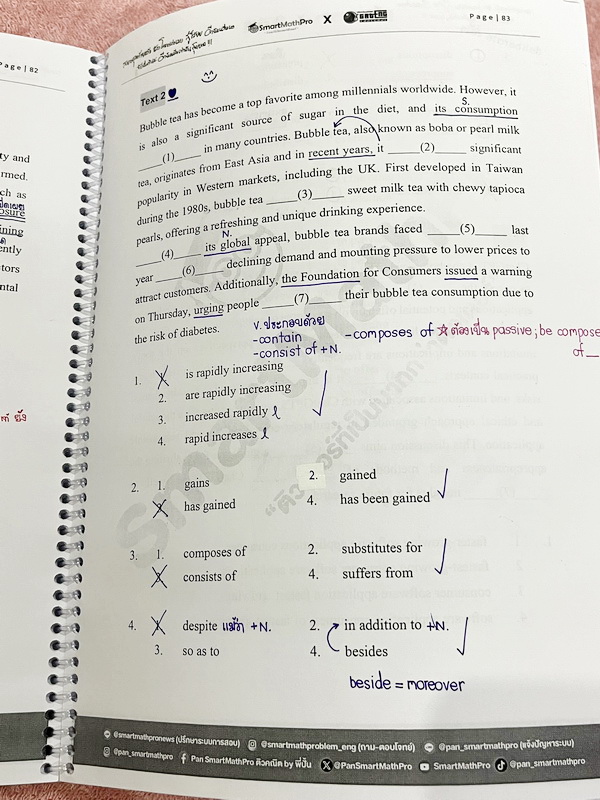 Page | 82
SmartMathPro X
Page | 83
Text 2
Bubble tea has become a top favorite among millennials worldwide. However, it
S.
is also a significant source of sugar in the diet, and its consumption
____(1)____ in many countries. Bubble tea, also known as boba or pearl milk
tea, originates from East Asia and in recent years, it ____(2)____ significant
popularity in Western markets, including the UK. First developed in Taiwan
during the 1980s, bubble tea ____(3)____ sweet milk tea with chewy tapioca
pearls, offering a refreshing and unique drinking experience.
N.
____(4)____ its global appeal, bubble tea brands faced ____(5)____ last
year ____(6)____ declining demand and mounting pressure to lower prices to
attract customers. Additionally, the Foundation for Consumers issued a warning
on Thursday, urging people ____(7)____ their bubble tea consumption due to
the risk of diabetes.
V. ประกอบด้วย
-contain
-consist of +N.
-composes of ☆ ต้องเป็น passive; be compose
of__
1. 1. is rapidly increasing
2. are rapidly increasing
3. increased rapidly
4. rapid increases
2. 1. gains 2. gained
3. has gained 4. has been gained
3. 1. composes of 2. substitutes for
3. consists of 4. suffers from
4. 1. despite แม้ว่า +N. 2. in addition to +N.
3. so as to 4. besides
beside = moreover
@smartmathpronews (ปรึกษาระบบการสอบ) @smartmathproblem_eng (ถาม-ตอบโจทย์) @pan_smartmathpro (แจ้งปัญหาระบบ)
@pan_smartmathpro Pan SmartMathPro ติวคณิต by พี่ปั้น @PanSmartMathPro SmartMathPro @pan_smartmathpro